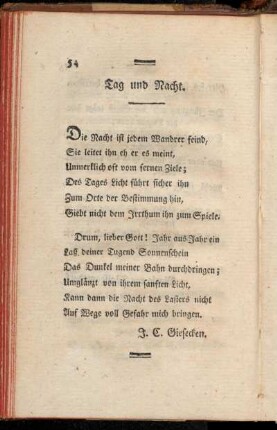 54
Tag und Nacht.
Die Nacht ist jedem Wandrer feind,
Sie leitet ihn eh er es meint,
Unmerklich oft vom fernen Ziele;
Des Tages Licht führt sicher ihn
Zum Orte der Bestimmung hin,
Giebt nicht dem Irrthum ihn zum Spiele.
Drum, lieber Gott! Jahr aus Jahr ein
Laß deiner Tugend Sonnenschein
Das Dunkel meiner Bahn durchdringen;
Umglänzt von ihrem sanften Licht,
Kann dann die Nacht des Lasters nicht
Auf Wege voll Gefahr mich bringen.
J. C. Giesecken.